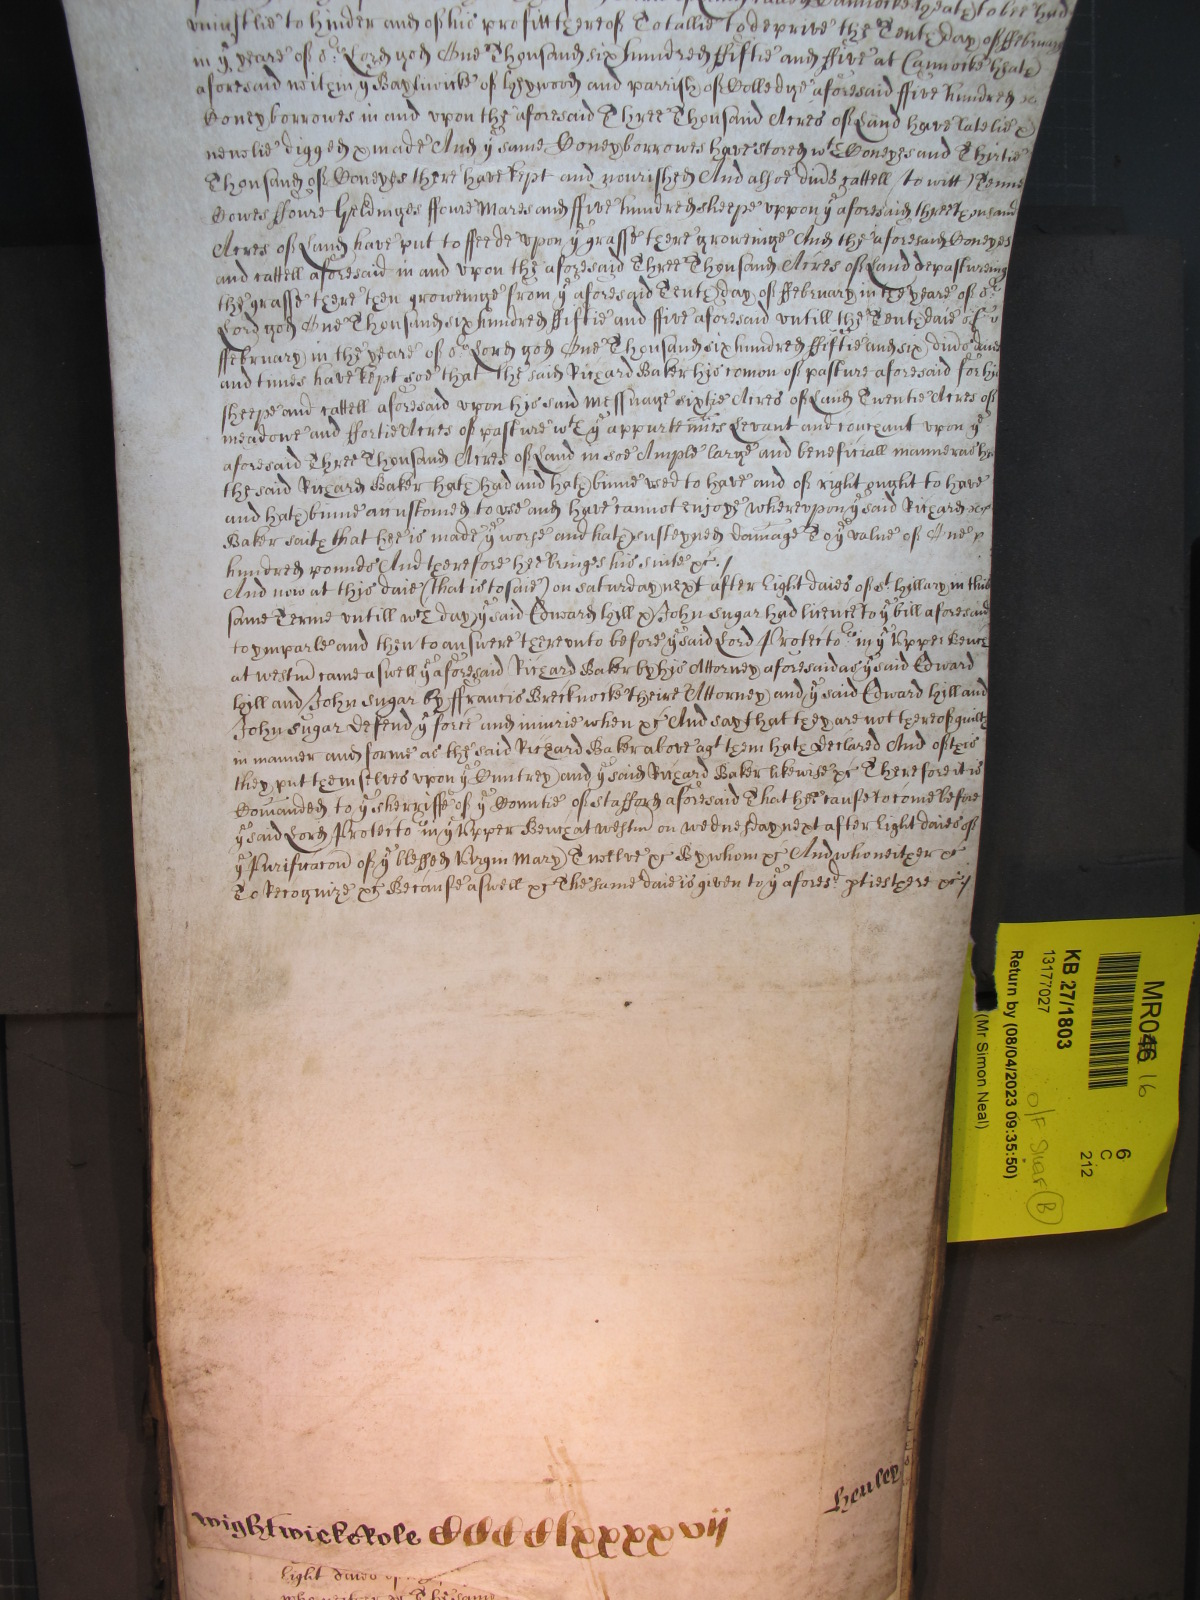 uniustlie to hinder and of his profitt thereof Totallie to deprive the Tenth day of February
in yͤ yeare of oʳ Lord god One Thousand six hundred ffiftie and ffive at Cannocke heath
aforesaid within yͤ Bayliwicke of Heywood and parrish of Colledge aforesaid ffive hundred
Coneyborrowes in and upon the aforesaid Three Thousand Acres of Land have latelie &
newlie digged & made And yͤ same Coneyborrowes have stored wᵗʰ Coneyes and Thirtie
Thousand of Coneyes there have kept and nourished And alsoe divˢ cattell / to witt / Tenne
Cowes ffoure Geldinges ffoure Mares and ffive hundred sheepe uppon yͤ aforesaid three thousand
Acres of Land have put to ffeede upon yͤ grasse there groweinge And the aforesaid Coneyes
and cattell aforesaid in and upon the aforesaid Three Thousand Acres of Land depastureing
the grasse there then groweinge from yͤ aforesaid Tenth day of ffebruary in the yeare of oʳ
Lord god One Thousand six hundred ffiftie and ffive aforesaid untill the Tenth daie of
ffebruary in the yeare of oʳ Lord god One Thousand six hundred ffiftie and six divˢ daies
and times have kept soe that the said Richard Baker his comon of pasture aforesaid for his
sheepe and cattell aforesaid upon his said messuage sixtie Acres of Land Twentie Acres of
meadowe and ffortie Acres of pasture wᵗʰ yͤ appurtenncs Levant and couchant upon yͤ
aforesaid Three Thousand Acres of Land in soe Ample large and beneficiall manner as he
the said Richard Baker hath had and hath binne used to have and of right ought to have
and hath binne accustomed to use and have cannot enjoye whereupon yͤ said Richard
Baker saith that hee is made yͤ worse and hath susteyned damage To yͤ value of One
hundred pounds And therefore hee bringes his suite &c. /
And now at this daie (that is to saie) on saturday next after Eight daies of sᵗ Hillary in this
same Terme untill wᶜʰ day yͤ said Edward Hyll & John Sugar had licence to yͤ bill aforesaid
to ymparle and then to answere thereunto before yͤ said Lord Protectoʳ in yͤ Upper Bench
at westm̄ came aswell yͤ aforesaid Richard Baker by his Attorney aforesaid as yͤ said Edward
Hill and John Sugar by ffrancis Brecknocke theire Attorney and yͤ said Edward Hill and
John Sugar defend yͤ force and injurie when &c And say that they are not thereof guilty
in manner and forme as the said Richard Baker above agᵗ them hath declared And of this
they put themselves upon yͤ Cuntrey and yͤ said Richard Baker likewise &c Therefore it is
Comanded to yͤ sherriffe of yͤ Countie of Stafford aforesaid That hee cause to come before
yͤ said Lord Protectoʳ in yͤ Upper Bench at westm̄ on wednesday next after Eight daies of
yͤ Purificacōn of yͤ blessed Virgin Mary Twelve &c By whom &c And who neither &c
To Recognize &c Because aswell &c The same daie is given to yͤ aforesᵈ pties there &c /
Henley
wightwicke Role DDDDDlxxxxvij
Eight daies of
who neither &c The same
MR046 16
6
C
212
KB 27/1803
13177027
O/F Shelf B
Return by (08/04/2023 09:35:50)
(Mr Simon Neal)